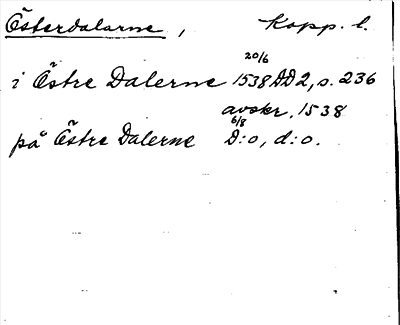 Österdalarne, Kopp. l.
20/6
i Östre Dalerne 1538 DD2, s. 236
avskr. 1538
6/8
på Östre Dalerne D:o, d:o.